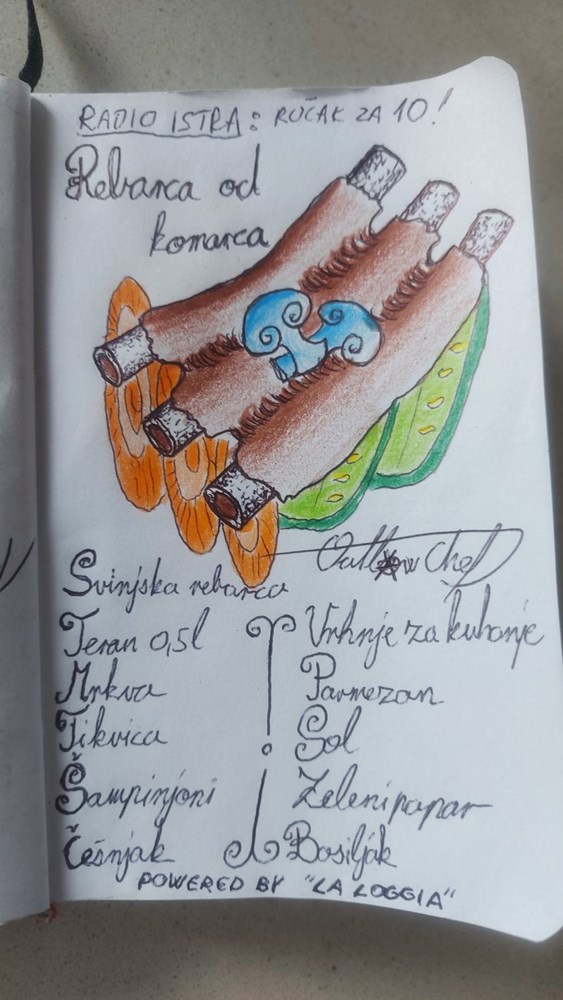 RADIO ISTRA: RUČAK ZA 10!
Rebarca od
komarca
Outlaw Chef
Svinjska rebarca
Teran 0,5l
Mrkva
Tikvica
Šampinjoni
Češnjak
Vrhnje za kuhanje
Parmezan
Sol
Zeleni papar
Bosiljak
POWERED BY "LA LOGGIA"